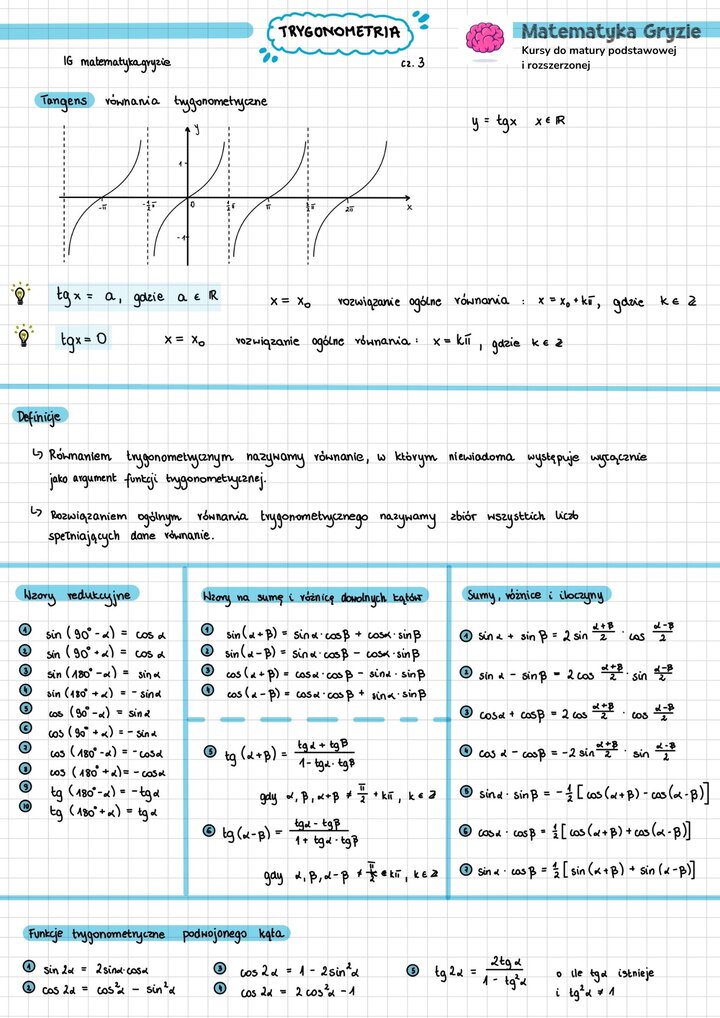 TRYGONOMETRIA
cz. 3
IG matematykagryzie
Matematyka Gryzie
Kursy do matury podstawowej
i rozszerzonej
Tangens równania trygonometryczne
y = tgx x ∈ ℝ
y
1
-π -½π 0 ½π π 3/2π 2π x
-1
tgx = a, gdzie a ∈ ℝ x = x₀ rozwiązanie ogólne równania : x = x₀ + kπ, gdzie k ∈ ℤ
tgx = 0 x = x₀ rozwiązanie ogólne równania : x = kπ, gdzie k ∈ ℤ
Definicje
↳ Równaniem trygonometrycznym nazywamy równanie, w którym niewiadoma występuje wyłącznie
jako argument funkcji trygonometrycznej.
↳ Rozwiązaniem ogólnym równania trygonometrycznego nazywamy zbiór wszystkich liczb
spełniających dane równanie.
Wzory redukcyjne
1 sin (90° - α) = cos α
2 sin (90° + α) = cos α
3 sin (180° - α) = sin α
4 sin (180° + α) = - sin α
5 cos (90° - α) = sin α
6 cos (90° + α) = - sin α
7 cos (180° - α) = - cos α
8 cos (180° + α) = - cos α
9 tg (180° - α) = - tg α
10 tg (180° + α) = tg α
Wzory na sumę i różnicę dowolnych kątów
1 sin(α+β) = sinα · cosβ + cosα · sinβ
2 sin(α-β) = sinα · cosβ - cosα · sinβ
3 cos(α+β) = cosα · cosβ - sinα · sinβ
4 cos(α-β) = cosα · cosβ + sinα · sinβ
5 tg (α+β) = (tgα + tgβ)/(1 - tgα · tgβ)
gdy α, β, α+β ≠ π/2 + kπ, k ∈ ℤ
6 tg (α-β) = (tgα - tgβ)/(1 + tgα · tgβ)
gdy α, β, α-β ≠ π/2 + kπ, k ∈ ℤ
Sumy, różnice i iloczyny
1 sin α + sin β = 2 sin (α+β)/2 · cos (α-β)/2
2 sin α - sin β = 2 cos (α+β)/2 · sin (α-β)/2
3 cosα + cosβ = 2 cos (α+β)/2 · cos (α-β)/2
4 cos α - cosβ = -2 sin (α+β)/2 · sin (α-β)/2
5 sinα · sinβ = -½ [cos(α+β) - cos(α-β)]
6 cosα · cosβ = ½ [cos(α+β) + cos(α-β)]
7 sinα · cosβ = ½ [sin(α+β) + sin(α-β)]
Funkcje trygonometryczne podwojonego kąta
1 sin 2α = 2sinα·cosα
2 cos 2α = cos²α - sin²α
3 cos 2α = 1 - 2sin²α
4 cos 2α = 2cos²α - 1
5 tg 2α = 2tg α/(1 - tg²α)
o ile tgα istnieje
i tg²α ≠ 1